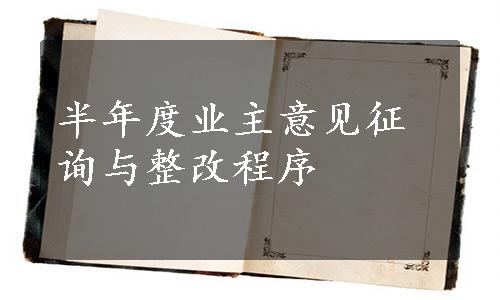 半年度业主意见征
询与整改程序